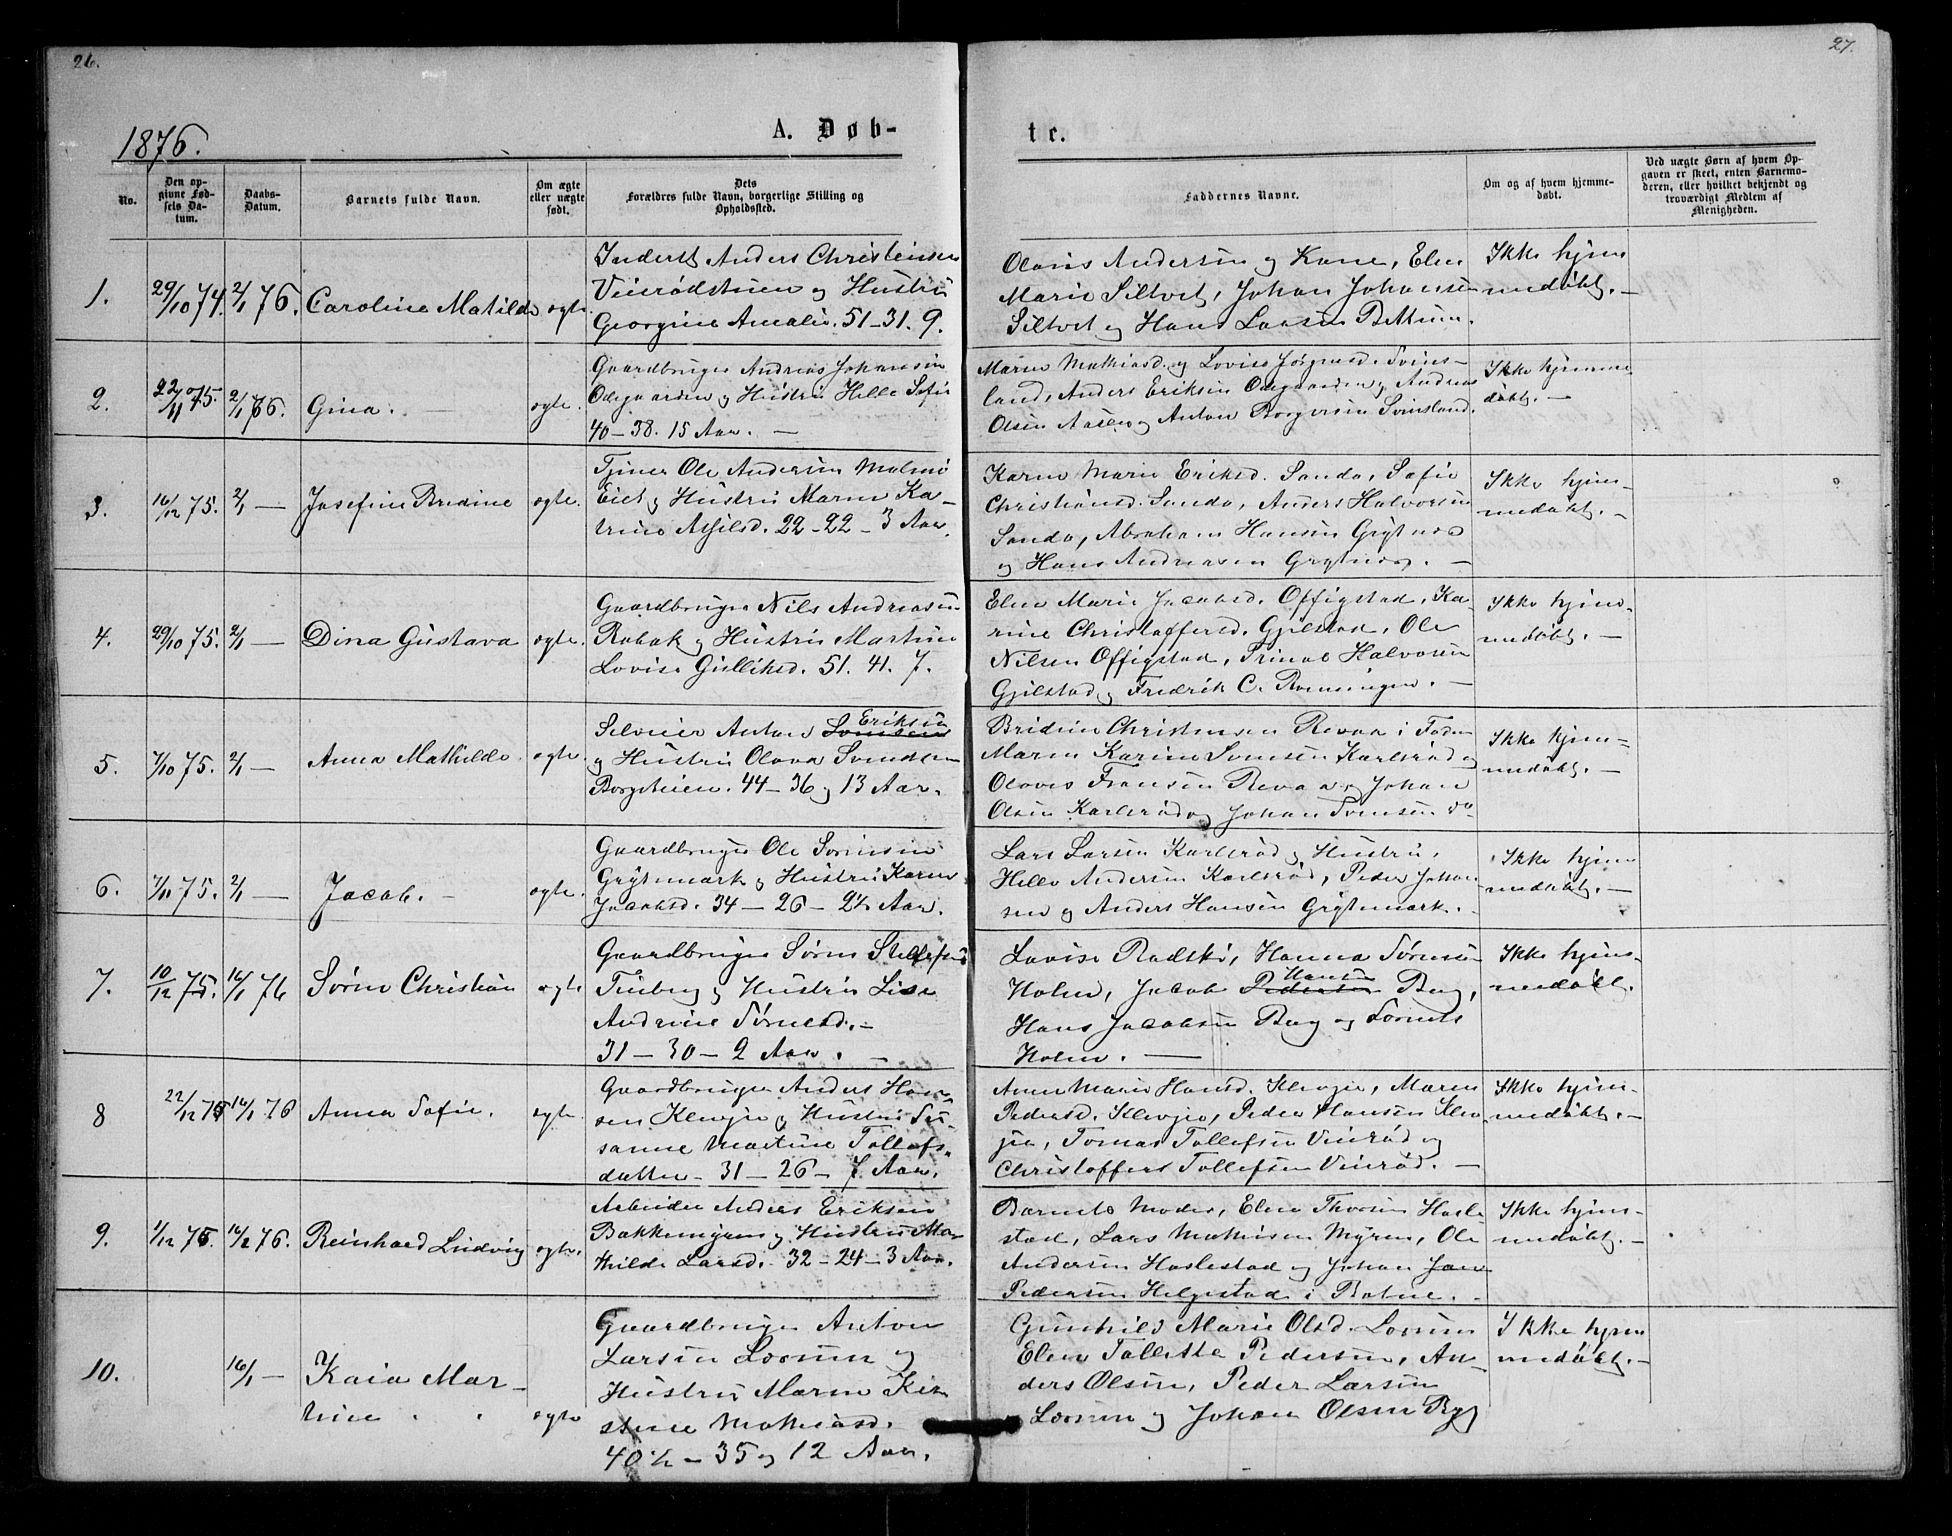 26.
27.
1876.
A. Døb-
te.
No.
Den op-
givne Fød-
sels Da-
tum.
Daabs-
Datum.
Barnets fulde Navn.
Om ægte
eller uægte
født.
Dets
Forældres fulde Navn, borgerlige Stilling og
Opholdssted.
Faddernes Navne.
Om og af hvem hjemme-
døbt.
Ved uægte Børn af hvem Op-
gaven er skeet, enten Barnemo-
deren, eller hvilket bekjendt og
troværdigt Medlem af
Menigheden.
1.
29/10 74.
2/1 76.
Caroline Matilde
ægte.
Inderst Anders Christensen
og Hustru
Georgine Amalie. 51-31. 9.
Olavus Andersen og Kone, Elen
Marie Siltvet, Johan Johansen
Siltvet og Hans Larsen
Ikke hjem
medøbt. —
2.
22/11 75.
2/1 76.
Gina.
ægte.
Gaardbruger Andreas Johansen
Ødegaarden og Hustru Helle Sofie
40-38. 15 Aar. —
Maren Mathiasd. og Lovise Jørgensd. Svins-
land, Anders Eriksen Ødegaarden og Andreas
Olsen Aasen og Anton Borgersen Svinsland.
Ikke hjemme
døbt. —
3.
16/12 75.
2/1 —
Josefine Bredine
ægte.
Tjener Ole Andersen Malmø
Eiet og Hustru Maren Ka-
trine 22-22-3 Aar.
Karen Marie Eriksd. Sanda, Sofie
Christiansd. Sanda, Anders Halvorsen
Sanda, Abraham Hansen
og Hans Andreasen
Ikke hjem-
medøbt. —
4.
29/10 75.
2/1 —
Dina Gustava
ægte.
Gaardbruger Nils Andreasen
Robak og Hustru Martine
Lovise Gulliksd. 51. 41. 7.
Elen Marie Jacobsd. Offigstad, Ka-
rine Christoffersd. Gjelstad, Ole
Nilsen Offigstad, Halvorsen
Gjelstad og Fredrik C. Rønningen. —
Ikke hjem-
medøbt. —
5.
7/10 75.
2/1 —
Anna Mathilde
ægte.
Eriksen
Selveier Anton
og Hustru Olava Svendsen
44-36 og 13 Aar.
Christensen Revaa i
Maren Karine Svensen Karlsrød og
Olaves Fransen Revaa og Johan
Olsen Karlsrød og Johan Svensen do
Ikke hjem-
medøbt. —
6.
7/11 75.
2/1 —
Jacob. —
ægte.
Gaardbruger Ole Sørensen
Grytnmark og Hustru Karen
Jacobsd. 34-26-2½ Aar.
Lars Larsen Karlsrød og Hustru,
Helle Andersen Karlsrød, Peder Johan
sen og Anders Hansen Grytnmark. —
Ikke hjem
medøbt. —
7.
10/12 75.
16/1 76
Søren Christian
ægte
Gaardbruger Søren
og Hustru Lise
Andrine Sørensd. —
31-30-2 Aar. —
Lovise Hanna Sørensen
Hansen
Holm, Jacob Pedersen Berg,
Hans Jacobsen Berg og
Holm. —
Ikke hjem-
medøbt.
8
22/12 75
16/1 76
Anna Sofie.
ægte.
Gaardbruger Anders Han-
sen Klevjer og Hustru Su-
sanne Martine Tollefs-
datter- 31-26-7 Aar.
Anne Marie Hansd. Klevjer, Maren
Pedersd. Klevjer, Peder Hansen Klev
jer, Tomas Tollefsen Vinrød og
Christoffer Tollefsen Vinrød. —
Ikke hjem-
medøbt. —
9.
1/12 75.
16/2 76.
Reinhard Ludvig
ægte.
Arbeider Anders Eriksen
og Hustru Ma-
thilde Larsd. 32-24-3 Aar.
Barnets Moder, Elen Thorsen Hasle
stad, Lars Mathisen Myren, Ole
Andersen Haslestad og Johan
Pedersen Helgestad i Botne. —
Ikke hjem-
medøbt. —
10.
16/1 —
Kaia Mar-
tine
ægte
Gaardbruger Anton
Larsen og
Hustru Maren Kir-
stine Mathiasd.
40½-35 og 12 Aar.
Gunhild Marie Olsd.
Elen Tollette Pedersen, An-
ders Olsen, Peder Larsen
og Johan Olsen
Ikke hjem
medøbt. —